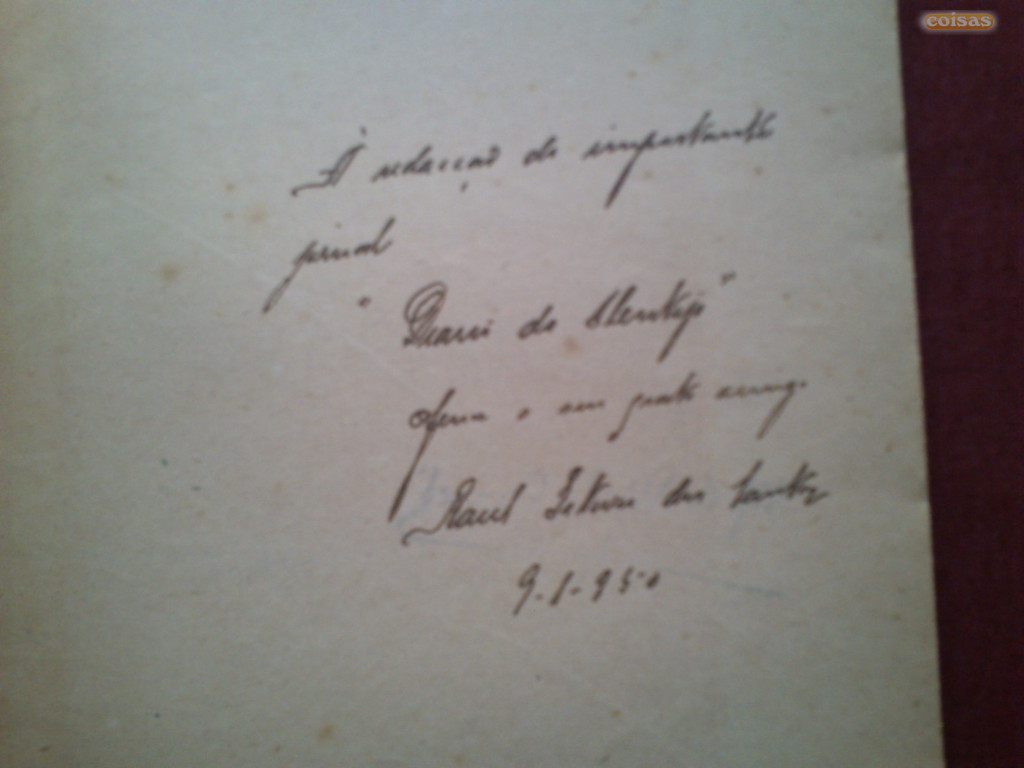 coisas
À redacção do importante
jornal
"Diario do Alentejo"
oferece o seu grato amigo
Raul Esteves dos Santos
9-1-950